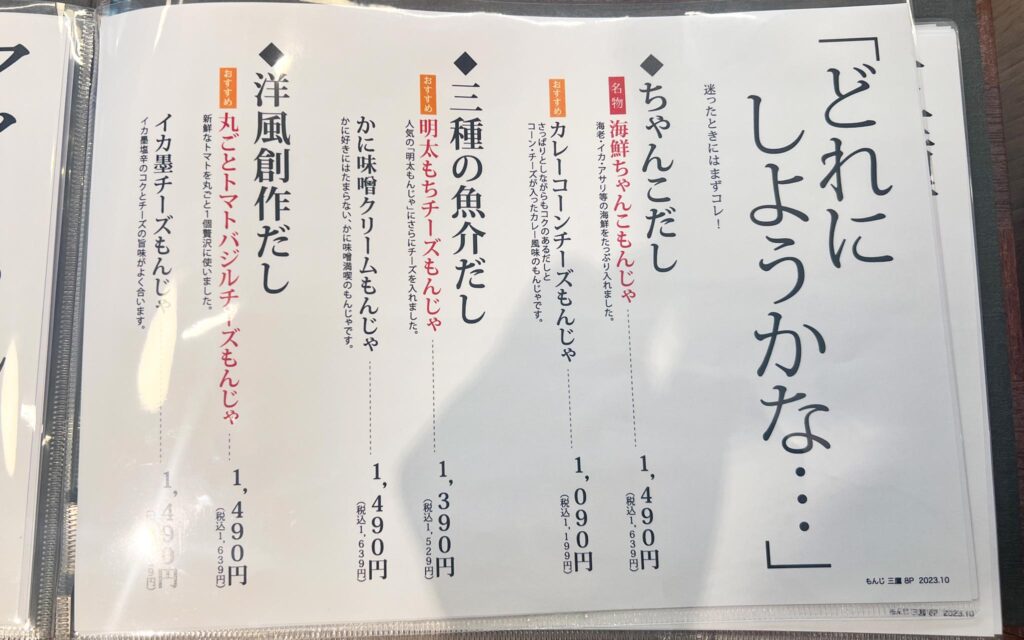 「どれに
しようかな…」
迷ったときにはまずコレ！
◆ちゃんこだし
名物
海鮮ちゃんこもんじゃ
1,490円
(税込1,639円)
海老・イカ・アサリ等の海鮮をたっぷり入れました。
おすすめ
カレーコーンチーズもんじゃ
1,090円
(税込1,199円)
さっぱりとしながらもコクのあるだしと
コーン・チーズが入ったカレー風味のもんじゃです。
◆三種の魚介だし
おすすめ
明太もちチーズもんじゃ
1,390円
(税込1,529円)
人気の「明太もんじゃ」にさらにチーズを入れました。
かに味噌クリームもんじゃ
1,490円
(税込1,639円)
かに好きにはたまらない、かに味噌満喫のもんじゃです。
◆洋風創作だし
おすすめ
丸ごとトマトバジルチーズもんじゃ
1,490円
(税込1,639円)
新鮮なトマトを丸ごと1個贅沢に使いました。
イカ墨チーズもんじゃ
イカ墨塩辛のコクとチーズの旨味がよく合います。
もんじ 三鷹 BP 2023.10
もんじ 三鷹 BP 2023.10